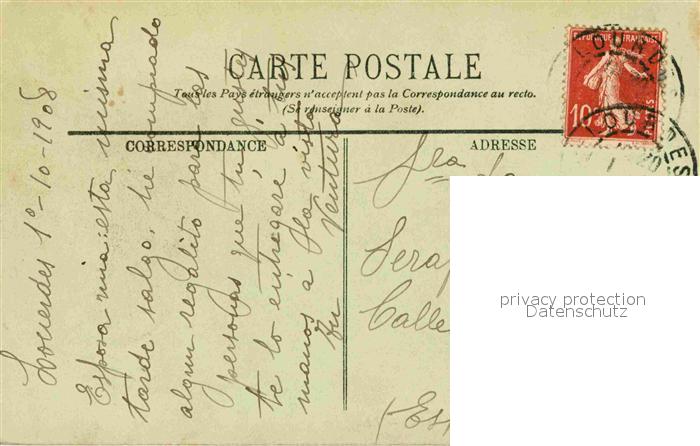 CARTE POSTALE
Tous les Pays étrangers n'acceptent pas la Correspondance au recto.
(Se renseigner à la Poste).
CORRESPONDANCE
ADRESSE
RÉPUBLIQUE FRANÇAISE
10
POSTES
Louerdes 1º-10-1908
Esposa mia: esta misma
tarde salgo, he comprado
algun regalito para las
personas que tu
te lo entregaré á
manos á la vista
tu Ventura
Sra
Seraf
Calle
(Es
privacy protection
Datenschutz